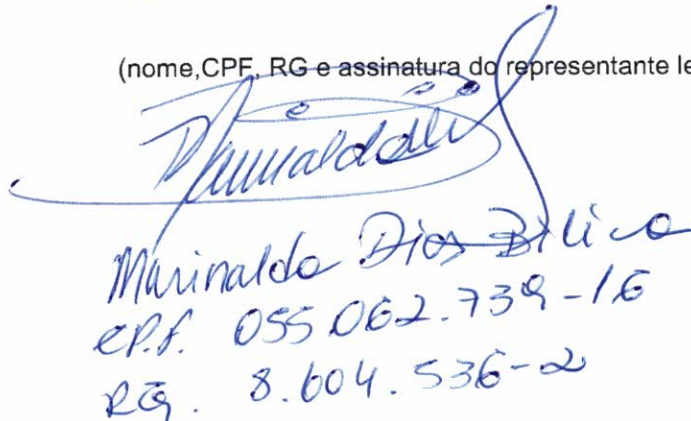 (nome,CPF, RG e assinatura do representante le
Marinaldo
Marinaldo Dias Bilico
CP.f. 055.062.739-16
RG. 8.604.536-2